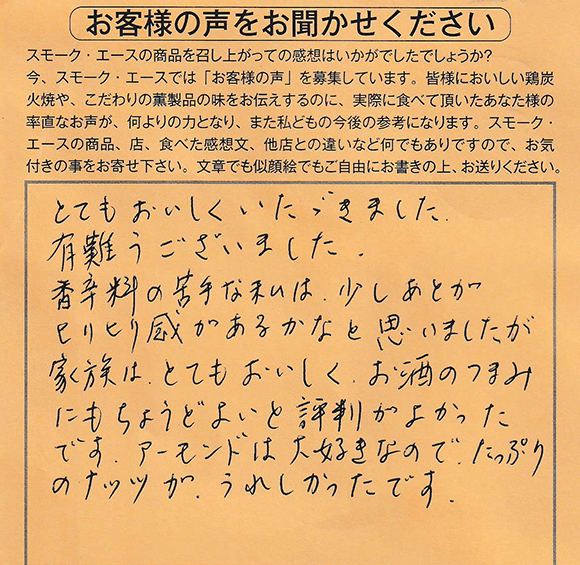 お客様の声をお聞かせください
スモーク・エースの商品を召し上がっての感想はいかがでしたでしょうか?
今、スモーク・エースでは「お客様の声」を募集しています。皆様においしい鶏炭
火焼や、こだわりの薫製品の味をお伝えするのに、実際に食べて頂いたあなた様の
率直なお声が、何よりの力となり、また私どもの今後の参考になります。スモーク・
エースの商品、店、食べた感想文、他店との違いなど何でもありですので、お気
付きの事をお寄せ下さい。文章でも似顔絵でもご自由にお書きの上、お送りください。
とてもおいしくいただきました.
有難うございました.
香辛料の苦手な私は.少しあとが
ヒリヒリ感があるかなと思いましたが
家族は.とてもおいしく.お酒のつまみ
にもちょうどよいと評判がよかった
です.アーモンドは大好きなので.たっぷり
のナッツが.うれしかったです.